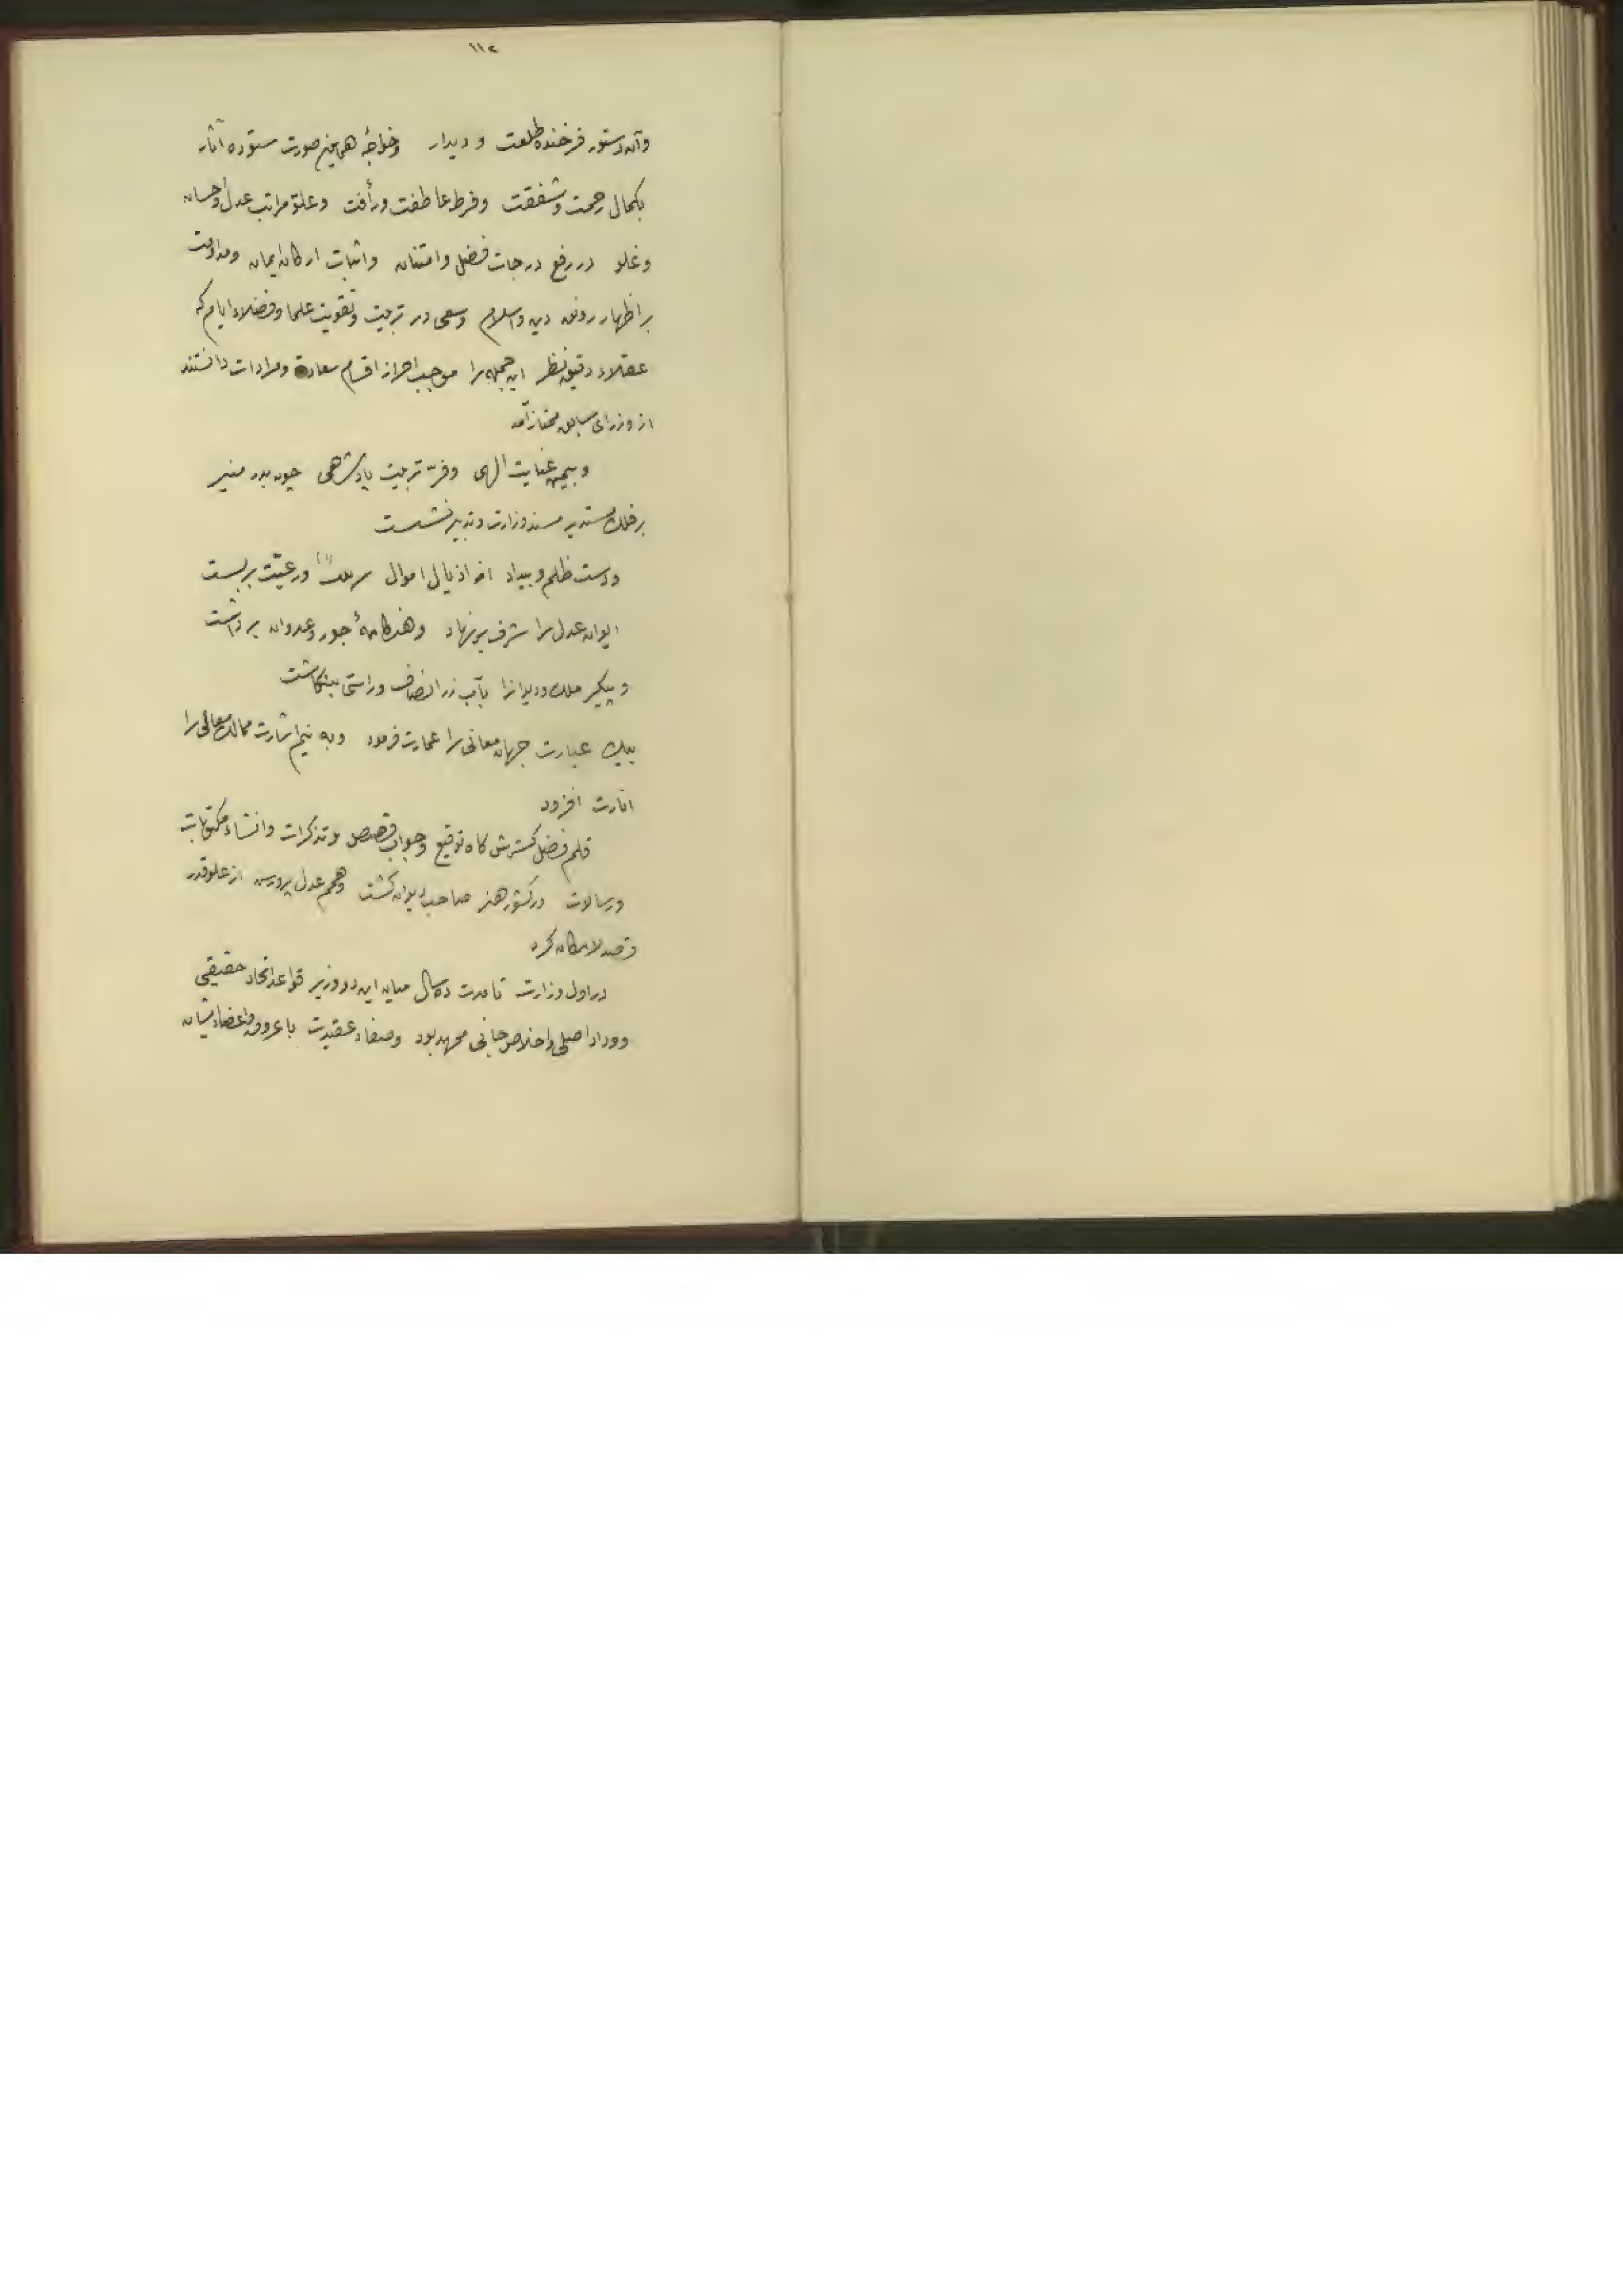 ۱۱۲
وآن دستور فرخنده طلعت و دیدار وخواجهٔ همایون صورت ستوده آثار
بکمال رحمت وشفقت وفرط عاطفت ورأفت وعلوّ مراتب عدل واحسان
وغلو در رفع درجات فضل وامتنان واثبات ارکان ایمان ومداومت
بر اظهار رونق دین واسلام وسعی در تربیت وتقویت علما وفضلاء ایام که
عقلاء دقیق نظر این جمله را موجب احراز اقسام سعادة ومرادات دانستند
از وزرای سابق ممتاز آمد
وبیمن عنایت الهی وفرّ تربیت پادشاهی چون بدر منیر
بر فلک مستدیر مسند وزارت وتدبیر نشست
ودست ظلم وبیداد از اذیال اموال ورعیّت بربست
ایوان عدل را شرف برنهاد وهنگامهٔ جور وعدوان برداشت
وپیکر ملک ودیوانرا بآب زر انصاف وراستی بنگاشت
بیک عبارت جهان معانی را عمارت فرمود وبه نیم اشارت ممالک معالی را
انارت افزود
قلم فضل گسترش گاه توقیع وجواب قصص وتذکرات وانشاء مکتوبات
ورسالات در کشور هنر صاحب دیوان گشت وهمم عدل پرورش از علو قدر
قصد لامکان کرد
در اول وزارت تا مدت ده سال میان این دو وزیر قواعد اتحاد حقیقی
ووداد اصلی واخلاص جانی ممهد بود وصفاء عقیدت با عروق واعضاء ایشان